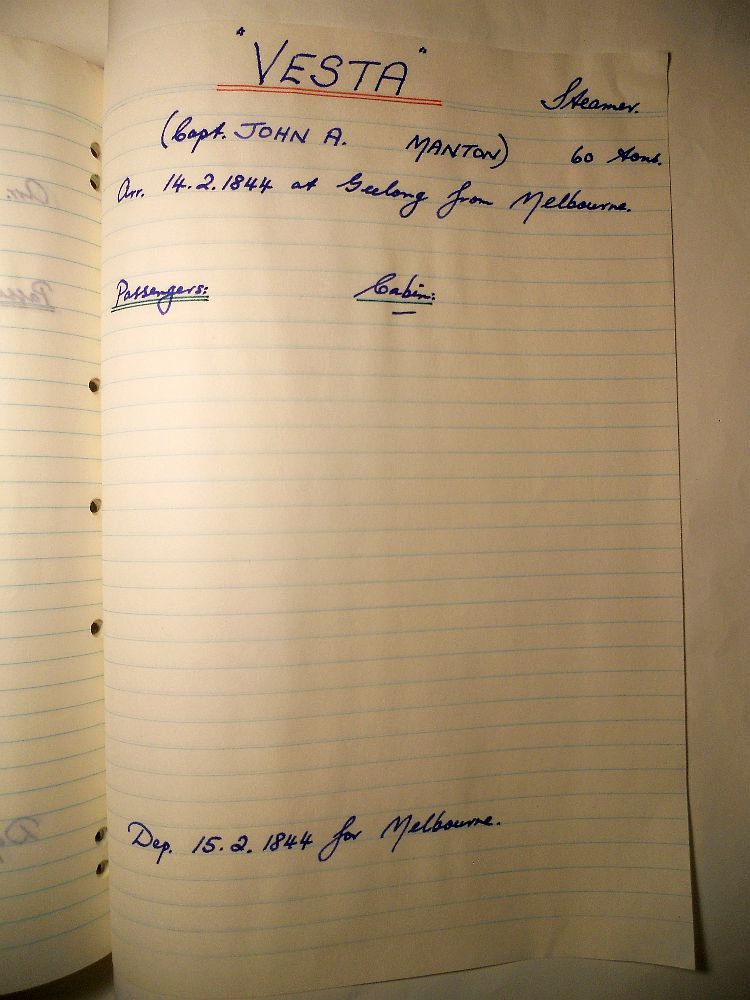 "VESTA"
Steamer.
(Capt. JOHN A. MANTON) 60 tons.
Arr. 14.2.1844 at Geelong from Melbourne.
Passengers: Cabin:
—
Dep. 15.2.1844 for Melbourne.